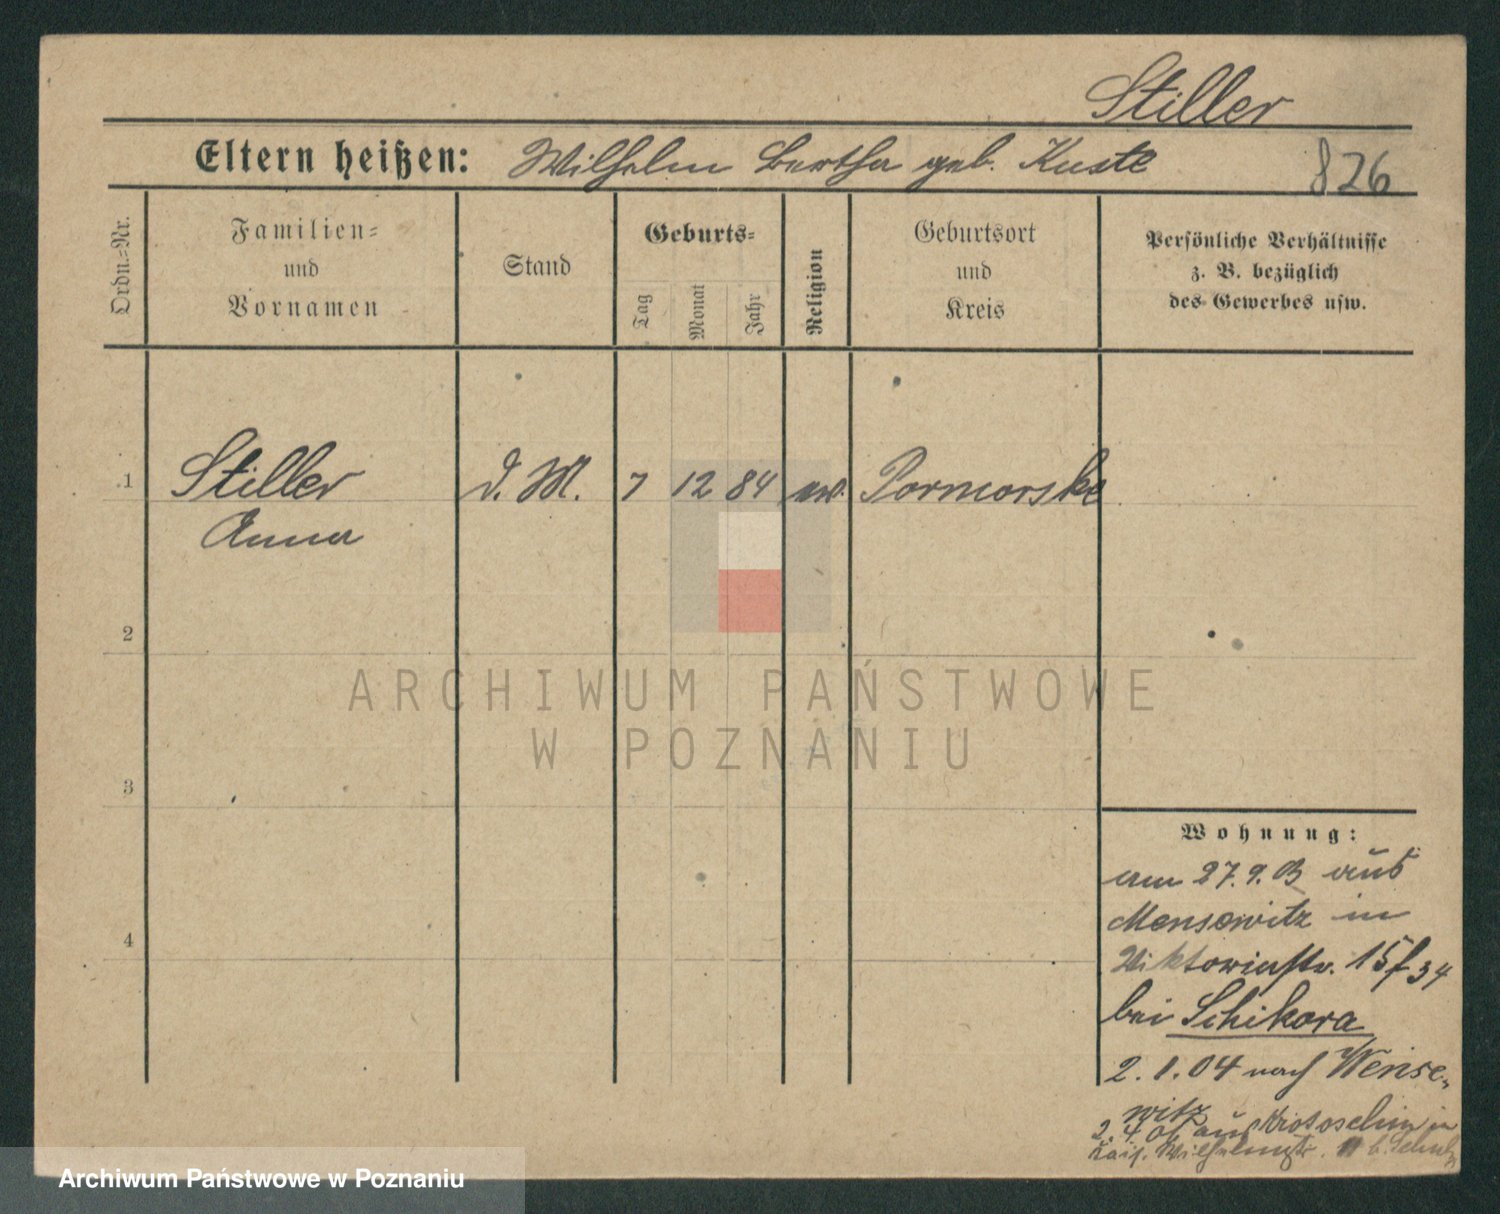 Stiller
Eltern heißen: Wilhelm Bertha geb. Kuste
826
Ordn.-Nr.
Familien-
und
Vornamen
Stand
Geburts-
Tag
Monat
Jahr
Religion
Geburtsort
und
Kreis
Persönliche Verhältnisse
z. B. bezüglich
des Gewerbes usw.
1 Stiller d. M. 7 12 84 ev. Pormorske
Anna
2
ARCHIWUM PAŃSTWOWE
W POZNANIU
3
4
Wohnung:
am 27.9.03 aus
Mensewitz in
Viktoriastr. 15 f 34
bei Schikora
2.1.04 nach Wense-
witz
2.4.06 aus Krotoschin in
Kais. Wilhelmstr. b.
Archiwum Państwowe w Poznaniu